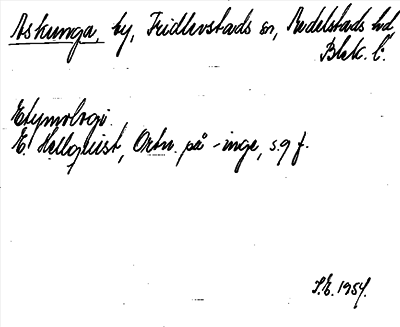 Askunga, by, Fridlevstads sn, Medelstads hd,
Blek. l:
Etymologi.
E. Hellquist, Ortn. på -inge, s. 9 f.
S.E. 1954.